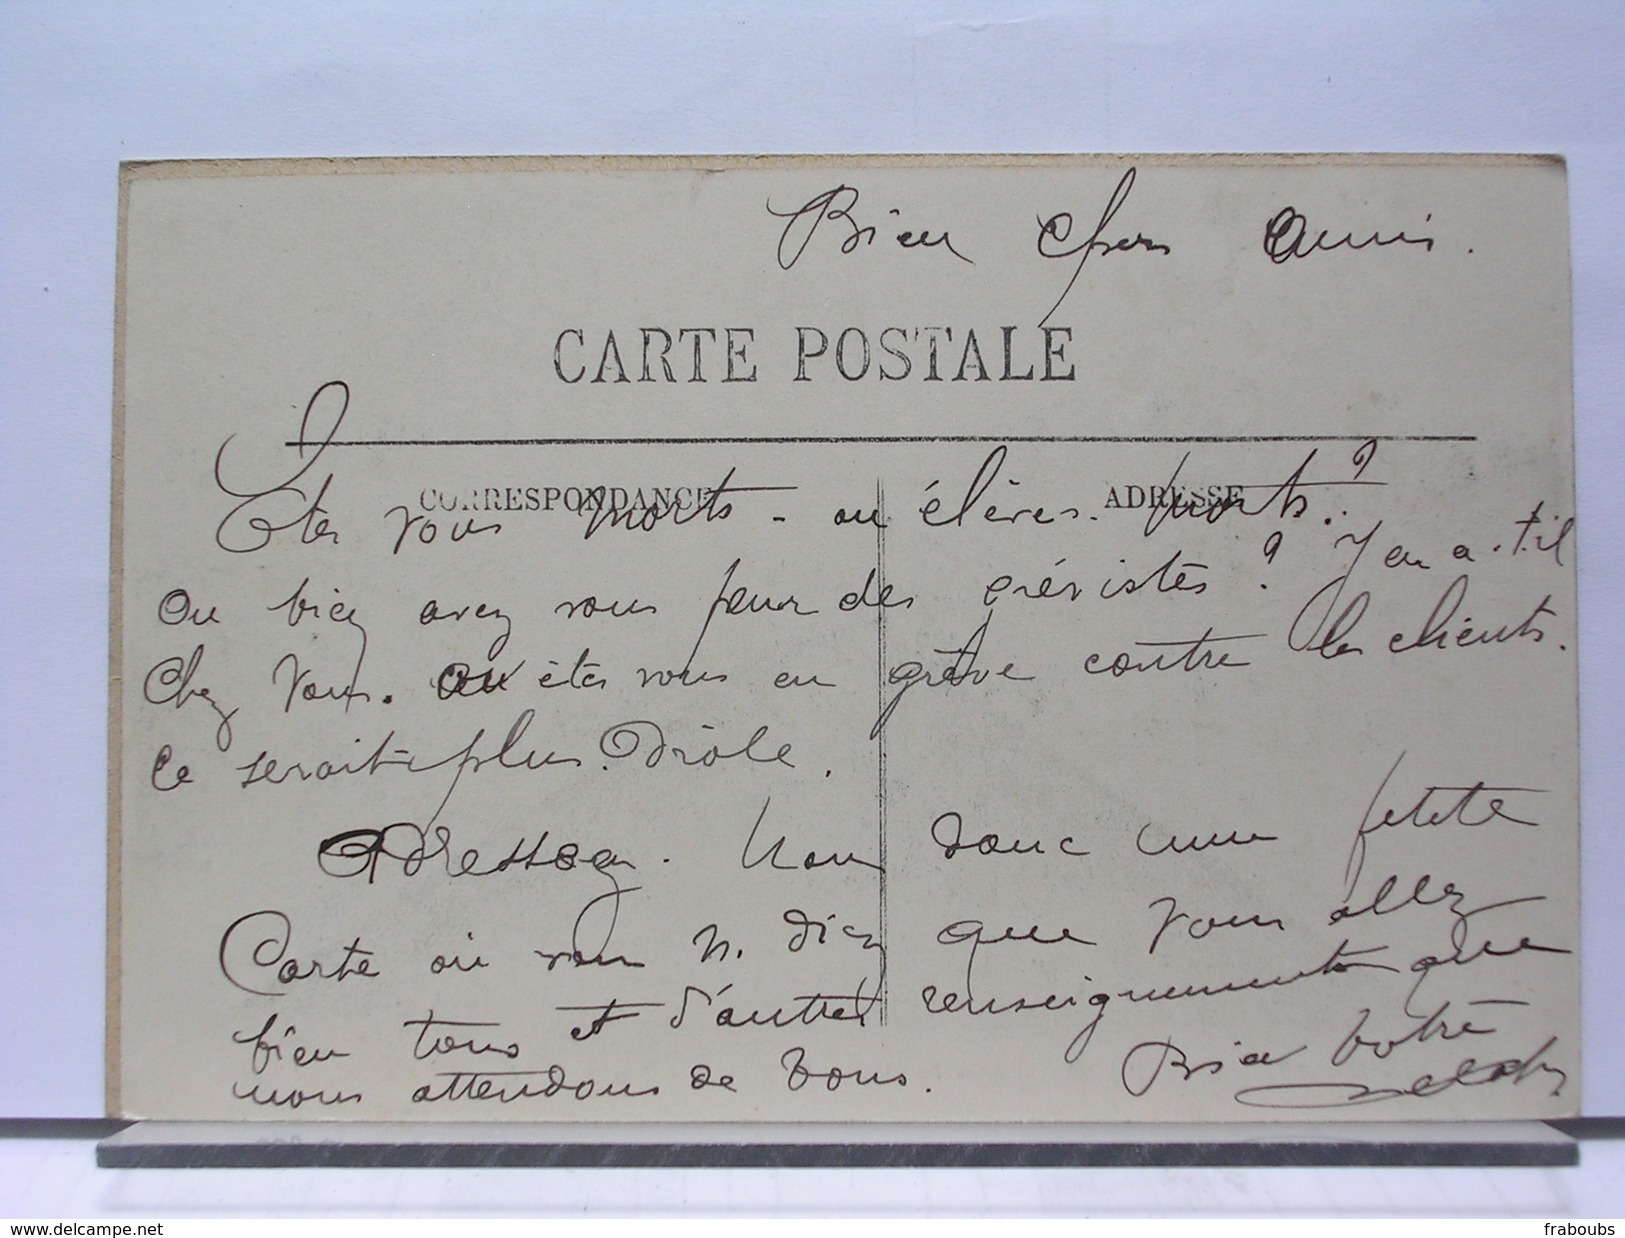 Bien chers Amis.
CARTE POSTALE
CORRESPONDANCE
ADRESSE
Etes vous morts - ou élèves morts?
ou bien avez vous peur des grévistes? Y en a-t-il
chez vous. ou êtes vous en grève contre les clients.
ce serait plus drôle.
Adressez. Nous donc une petite
Carte où vous n. diez que vous allez
bien tous et d'autres renseignements que
nous attendons de vous. Bien votre
www.delcampe.net
fraboubs